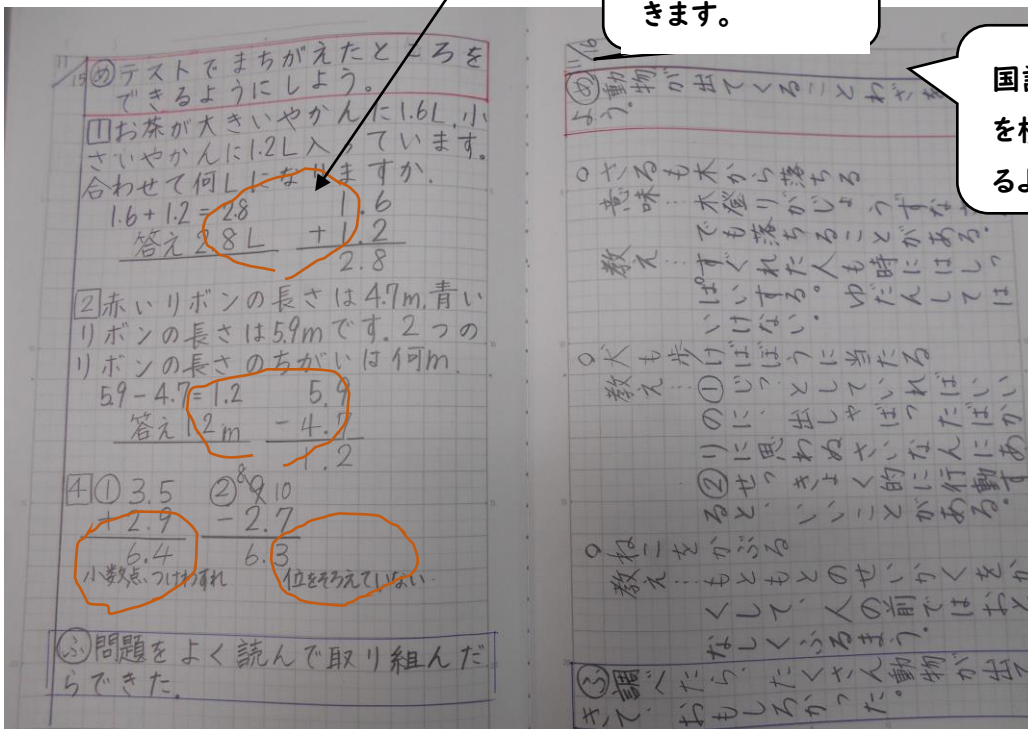 きます。
国語
11/15
めテストでまちがえたところを
できるようにしよう。
1お茶が大きいやかんに1.6L、小
さいやかんに1.2L入っています。
合わせて何Lになりますか.
1.6+1.2=2.8
答え2.8L
1.6
+1.2
2.8
2赤いリボンの長さは4.7m.青い
リボンの長さは5.9mです.2つの
リボンの長さのちがいは何m
5.9-4.7=1.2
答え1.2m
5.9
-4.7
1.2
4①3.5
+2.9
6.4
小数点、つけわすれ
②9 8 10
-2.7
6.3
位をそろえていない.
ふ問題をよく読んで取り組んだ
らできた.
11/16
め動物が出てくることわざを
よう。
○さるも木から落ちる
意味…木登りがじょうずな
でも落ちることがある。
教え…すぐれた人も時にはしっ
ぱいする。ゆだんしては
いけない。
○犬も歩けばぼうに当たる
教え…①じっとしていればいい
のに、出しゃばったばかい
りに思わぬさいなんにあ
②せっきょく的に行動す
ると、いいことがある。
○ねこをかぶる
教え…もともとのせいかくをか
くして、人の前ではおと
なしくふるまう。
ふ調べたら、たくさん動物が出て
きて、おもしろかった。